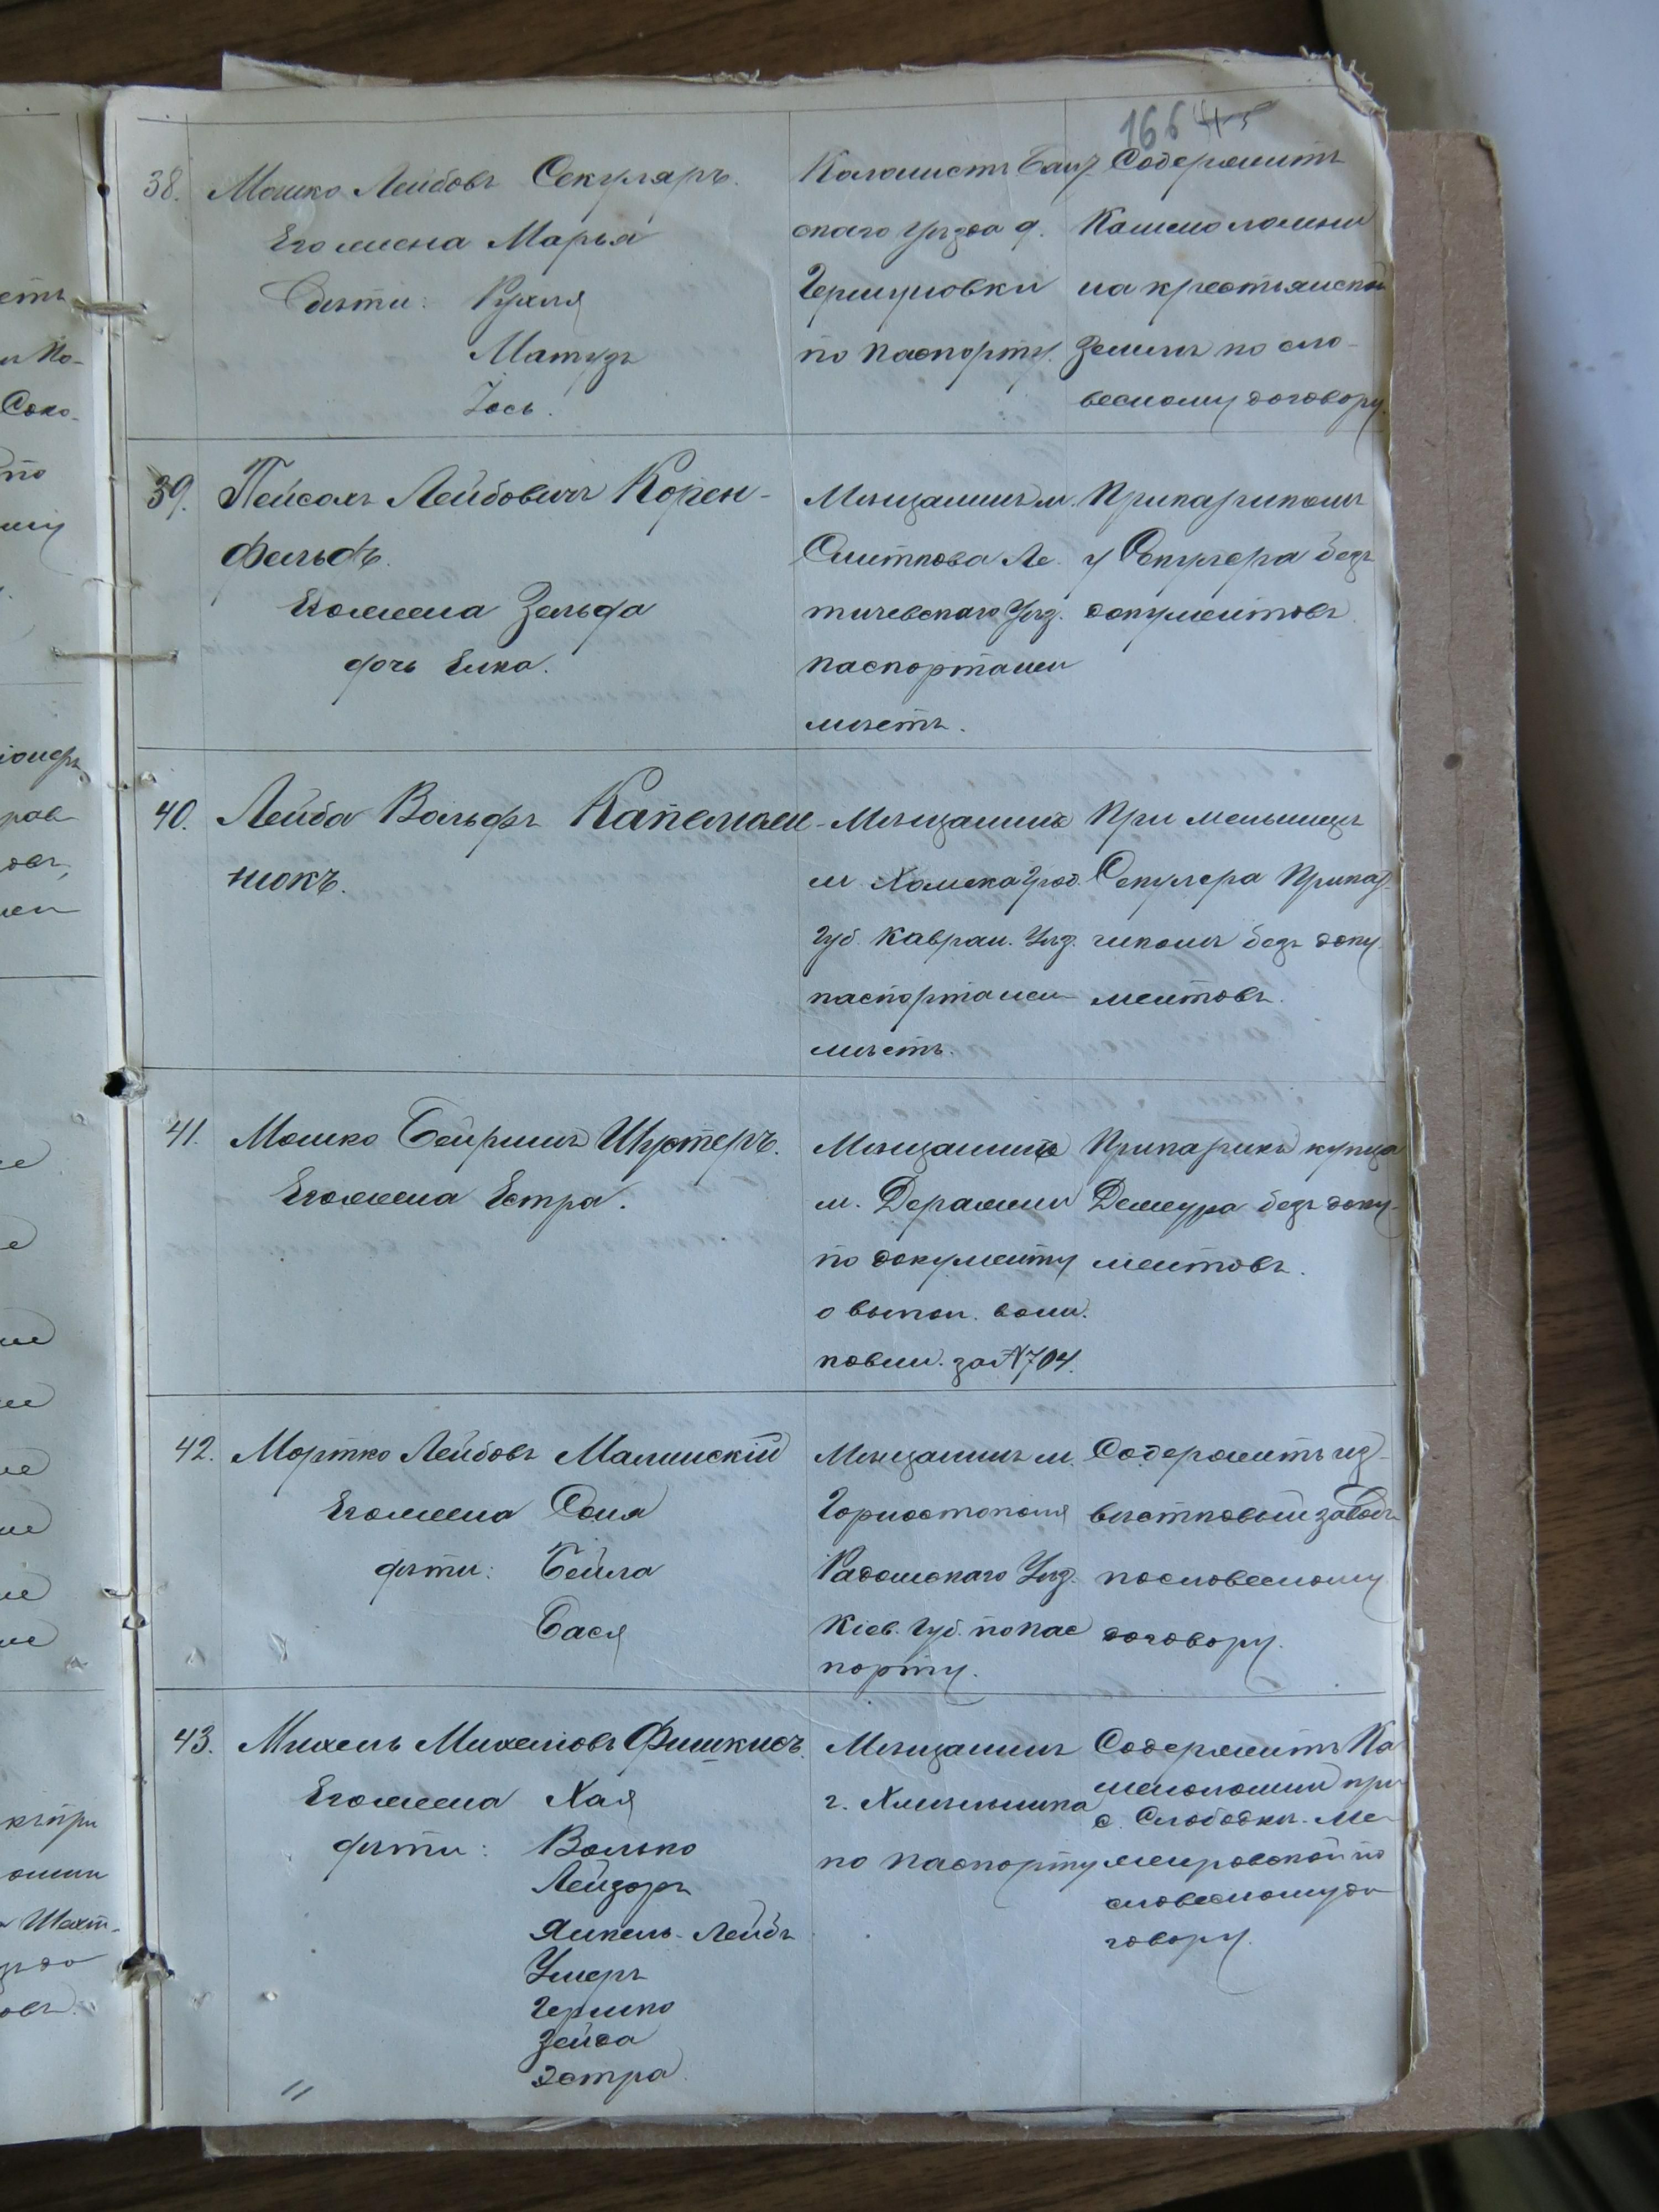 166
38. Мошко Лейбовъ Секуляръ.
Его жена Марья
Дѣти: Рухля
Матузъ
Іось.
Колонистъ Балт
скаго Уѣзда д.
Гершуновки
по паспорту.
Содержитъ
Каменоломни
на крестьянской
землѣ по сло-
весному договору.
39. Пейсахъ Лейбовичъ Корен-
фельдъ.
Его жена Зельда
дочь Елка.
Мѣщанинъ м.
Сниткова Ле
тичевскаго Уѣз.
паспорта не и
мѣетъ.
Прикащикомъ
у Секулера безъ
документовъ
40. Лейба Вольфъ Капельан-
нюкъ.
Мѣщанинъ
м Хомска Грод.
Губ. Кобрин. Уѣз.
паспорта не и
мѣетъ.
При мельницѣ
Секулера Прикаж-
чикомъ безъ доку
ментовъ.
41. Мошко Бейришъ Шустеръ.
Его жена Естра.
Мѣщанинъ
м. Деражни
по документу
о выпол. воин.
повин. за №704.
Прикащикъ купца
безъ доку-
ментовъ.
42. Мортко Лейбовъ Малинскій
Его жена Соня
дѣти: Бейла
Бася
Мѣщанинъ м.
Горностополя
Радомскаго Уѣз.
Кіев. Губ. по пас
порту.
Содержитъ из-
вестковый заводъ
по словесному
договору.
43. Михель Михелевъ Фишкисъ.
Его жена Хая
дѣти: Волько
Лейзоръ
Янкель-Лейбъ
Умеръ
Гершко
Зейда
Эстра
Мѣщанинъ
г. Хмѣльника
по паспорту
Содержитъ Ка
меноломни при
с. Слободкѣ-Ме-
жировской по
словесному до
говору.